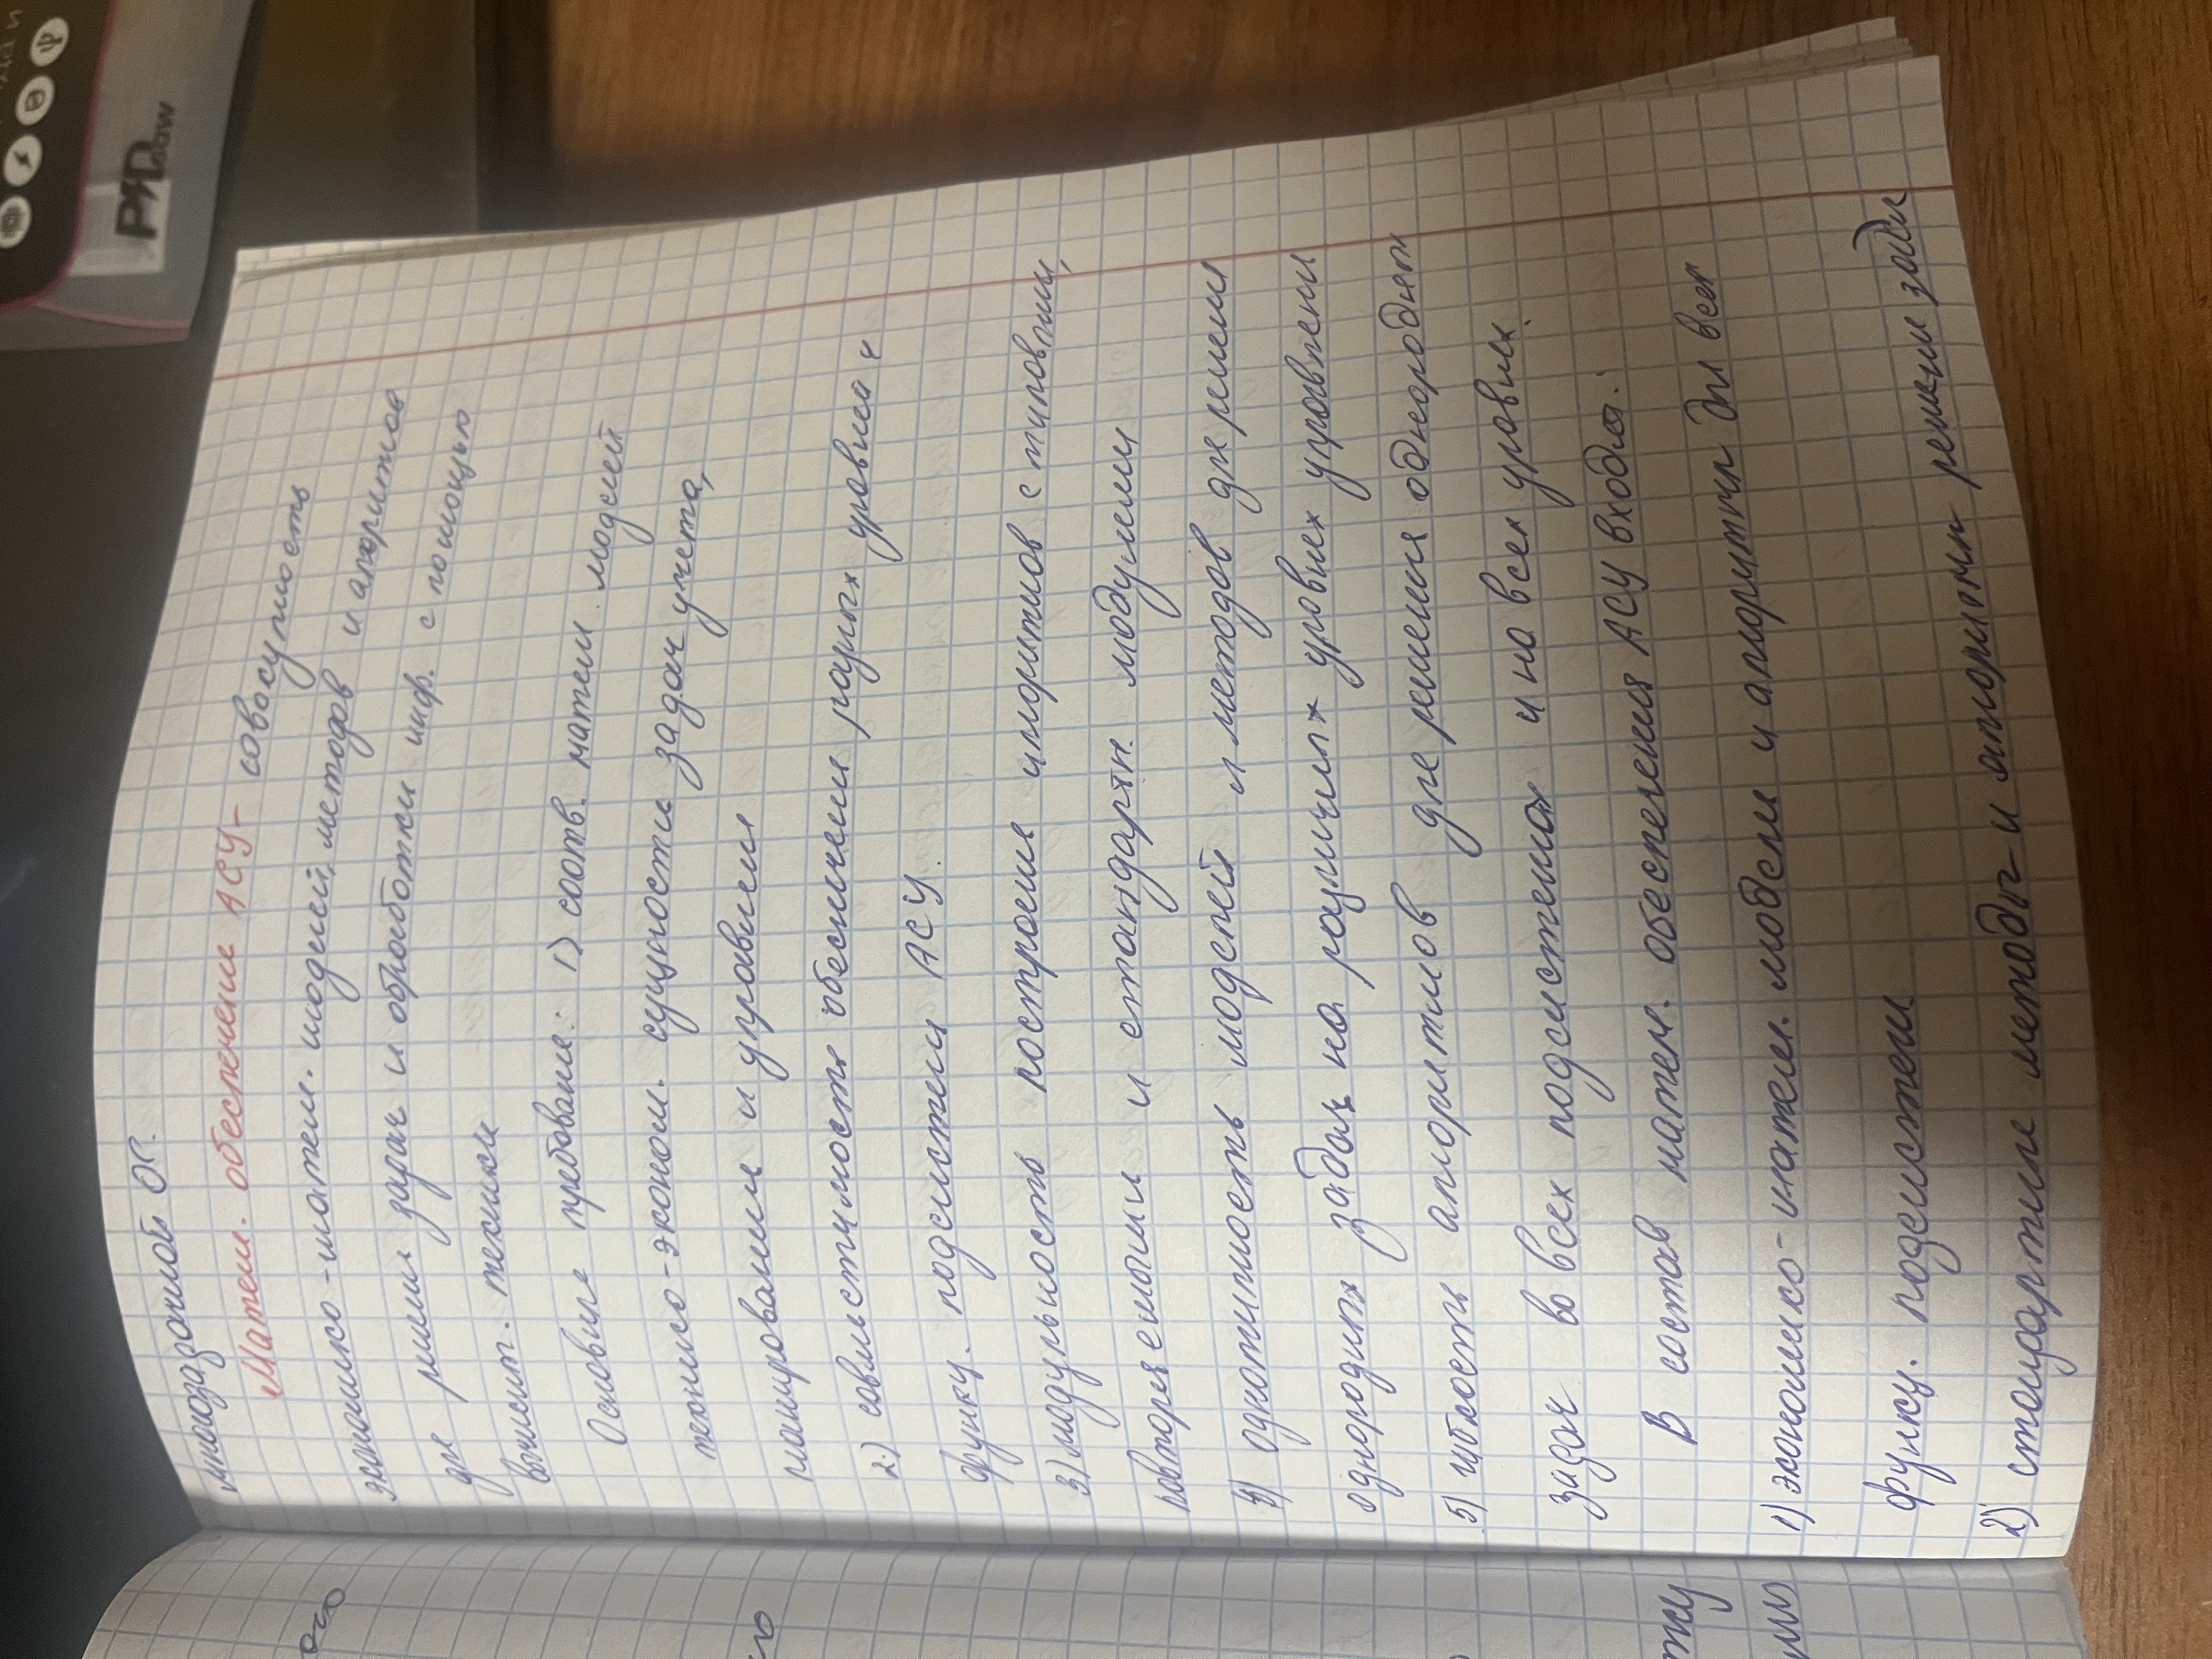 многозадачной ОС.
Матем. обеспечение АСУ - совокупность
экономико-матем. моделей, методов и алгоритмов
для решения задач и обработки инф. с помощью
вычислит. техники
Основные требования: 1) соотв. матем. моделей
технико-эконом. сущности задач учета,
планирования и управления
2) совместимость обеспечения разных уровней и
функц. подсистем АСУ
3) модульность построения алгоритмов с типовыми,
повторяемыми и стандартн. модулями
4) однотипность моделей и методов для решения
однородных задач на различных уровнях управления
5) гибкость алгоритмов для решения однородных
задач во всех подсистемах и на всех уровнях.
В состав матем. обеспечения АСУ входят:
1) экономико-матем. модели и алгоритмы для всех
функц. подсистем
2) стандартные методы и алгоритмы решения задач
PADDOW